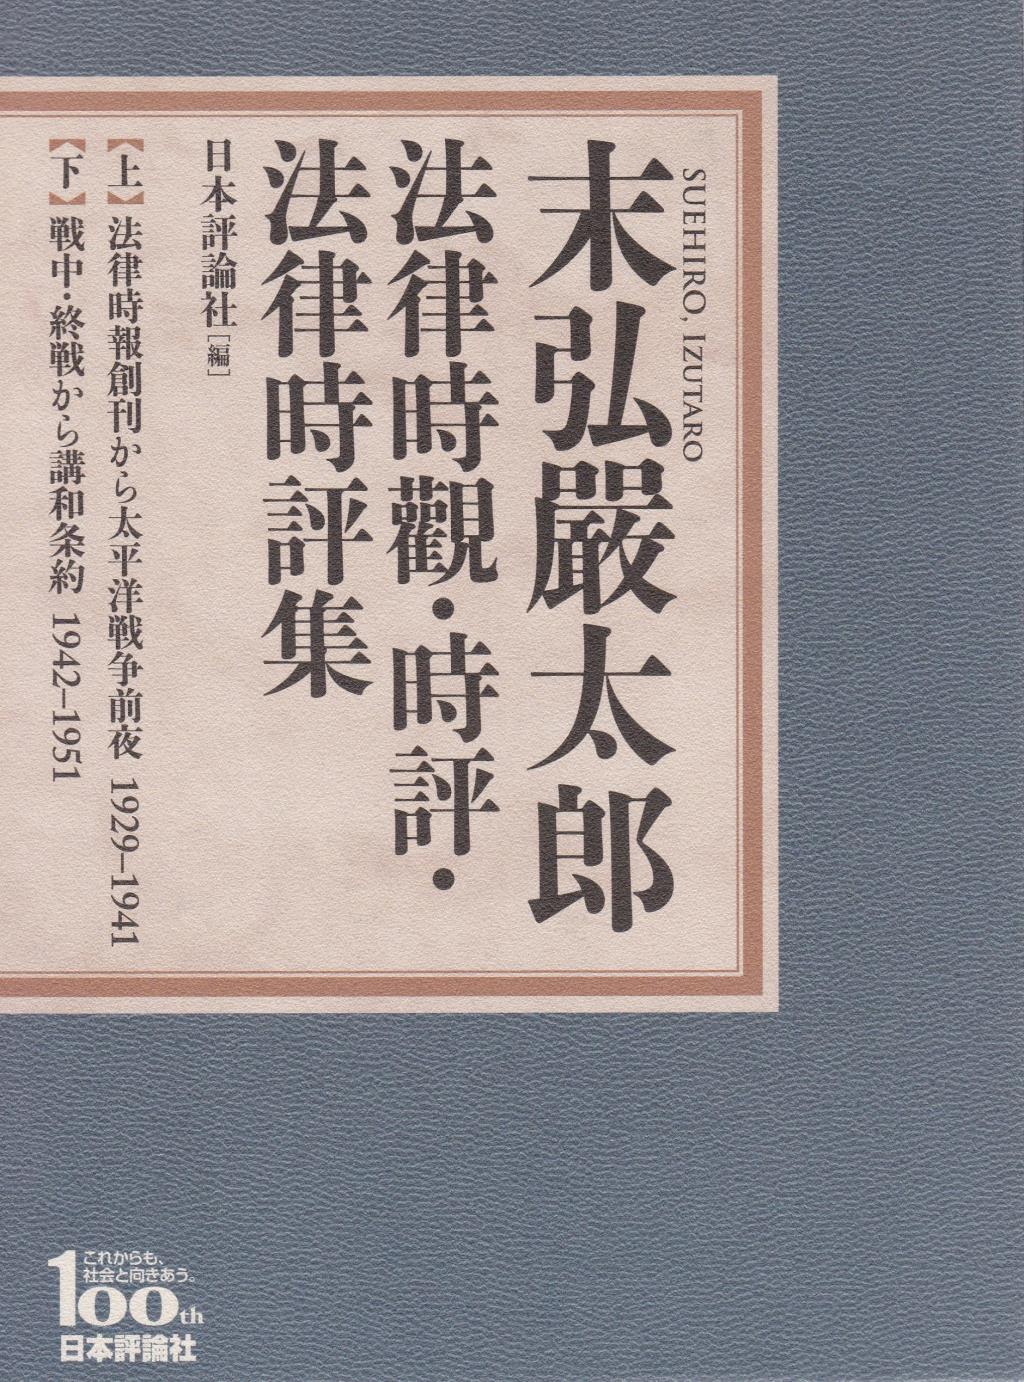 SUEHIRO, IZUTARO
末弘嚴太郎
法律時觀・時評・
法律時評集
日本評論社[編]
【上】法律時報創刊から太平洋戦争前夜 1929–1941
【下】戦中・終戦から講和条約 1942–1951
これからも、
社会と向きあう。
100th
日本評論社